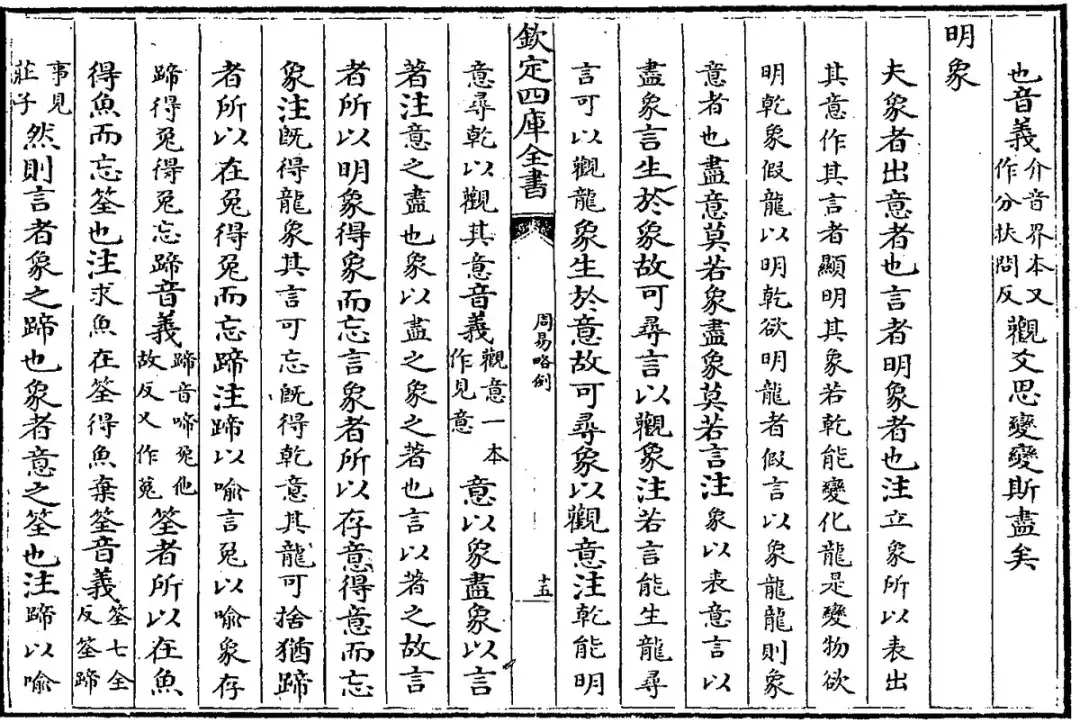 也音義介音界本又作分扶問反觀爻思變變斯盡矣
明象
夫象者出意者也言者明象者也注立象所以表出
其意作其言者顯明其象若乾能變化龍是變物欲
明乾象假龍以明乾欲明龍者假言以象龍龍則象
意者也盡意莫若象盡象莫若言注象以表意言以
盡象言生於象故可尋言以觀象注若言能生龍尋
言可以觀龍象生於意故可尋象以觀意注乾能明
欽定四庫全書
周易略例
十五
意尋乾以觀其意音義觀意一本作見意意以象盡象以言
著注意之盡也象以盡之象之著也言以著之故言
者所以明象得象而忘言象者所以存意得意而忘
象注既得龍象其言可忘既得乾意其龍可捨猶蹄
者所以在兔得兔而忘蹄注蹄以喻言兔以喻象存
蹄得兔得兔忘蹄音義蹄音啼兔他故反又作菟筌者所以在魚
得魚而忘筌也注求魚在筌得魚棄筌音義筌七全反筌蹄
事見莊子然則言者象之蹄也象者意之筌也注蹄以喻